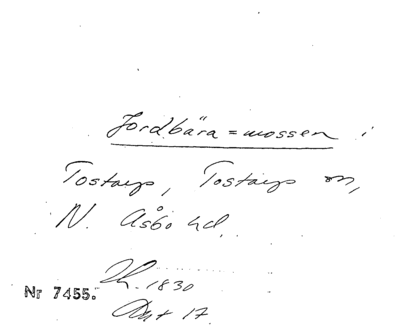 Jordbära=mossen i
Tostarp, Tostarps sn,
N. Åsbo hd.
1830
Nr 7455.
17